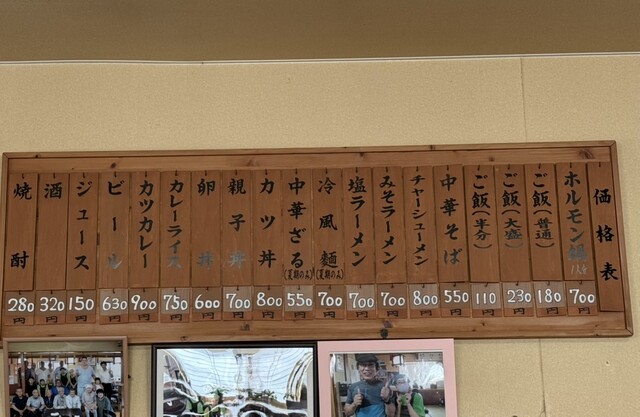 価格表
ホルモン鍋 1人前 700円
ご飯(普通) 180円
ご飯(大盛) 230円
ご飯(半分) 110円
中華そば 550円
チャーシューメン 800円
みそラーメン 700円
塩ラーメン 700円
冷風麺(夏期のみ) 700円
中華ざる(夏期のみ) 550円
カツ丼 800円
親子丼 700円
卵丼 600円
カレーライス 750円
カツカレー 900円
ビール 630円
ジュース 150円
酒 320円
焼酎 280円